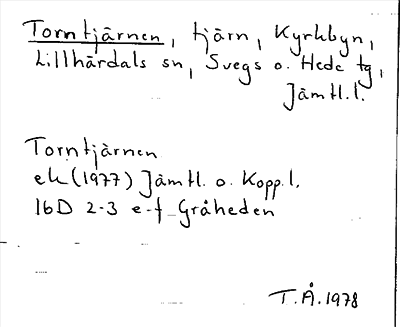 Torntjärnen, tjärn, Kyrkbyn,
Lillhärdals sn, Svegs o. Hede tg,
Jämtl.l.
Torntjärnen
ek (1977) Jämtl. o. Kopp.l.
16D 2-3 e-f Gråheden
T.Å. 1978